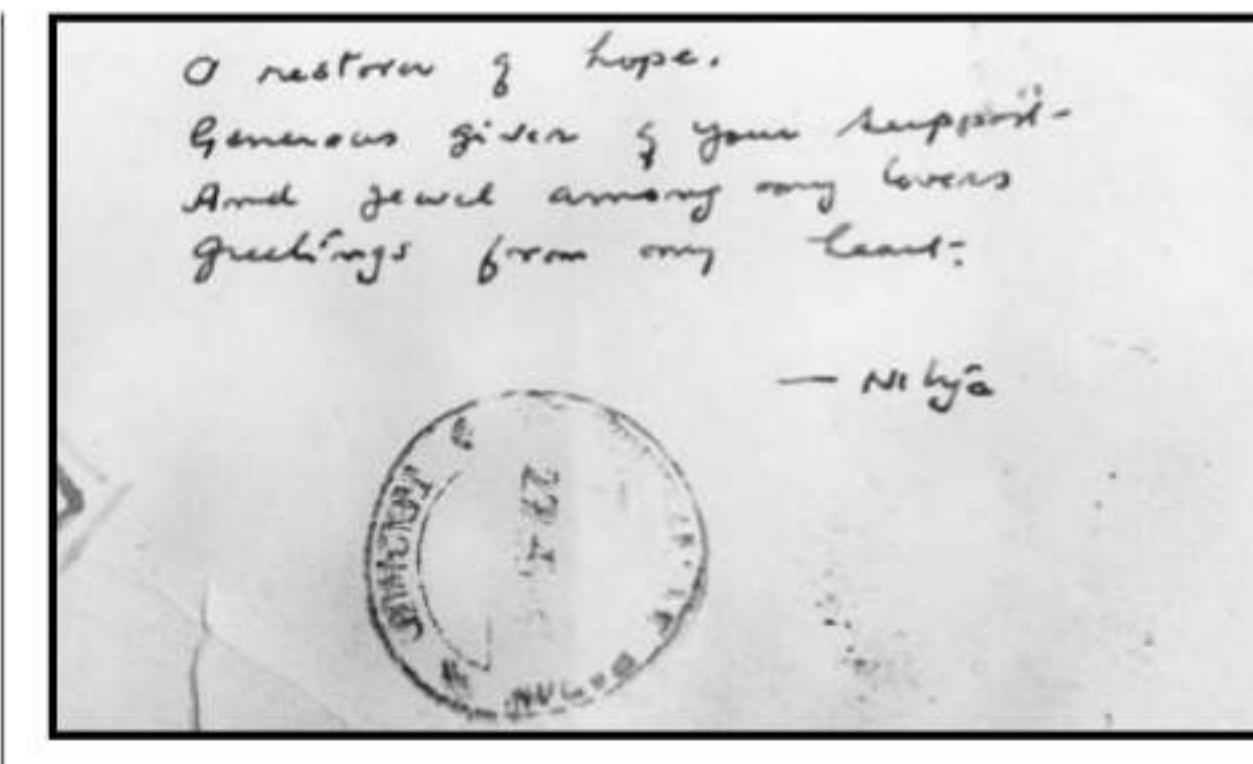 O restorer of hope.
Generous giver of your support
And jewel among my lovers
Greetings from my heart.
— Nitya
27